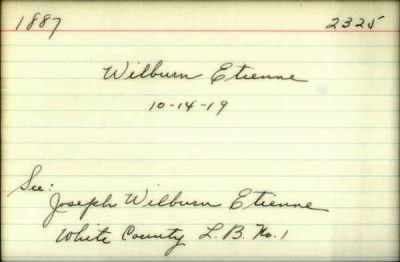 1887 2325
Wilburn Etienne
10-14-19
See:
Joseph Wilburn Etienne
White County L.B. No. 1